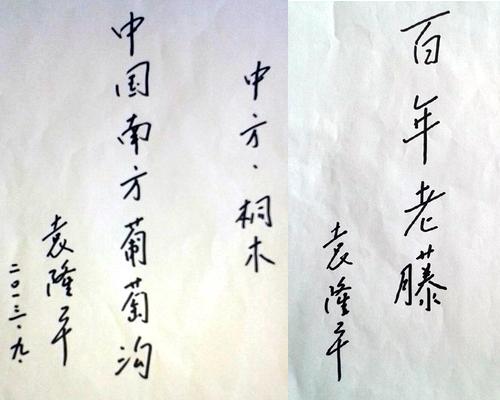 中方·桐木
中国南方葡萄沟
袁隆平
二〇一三.九.
百年老藤
袁隆平